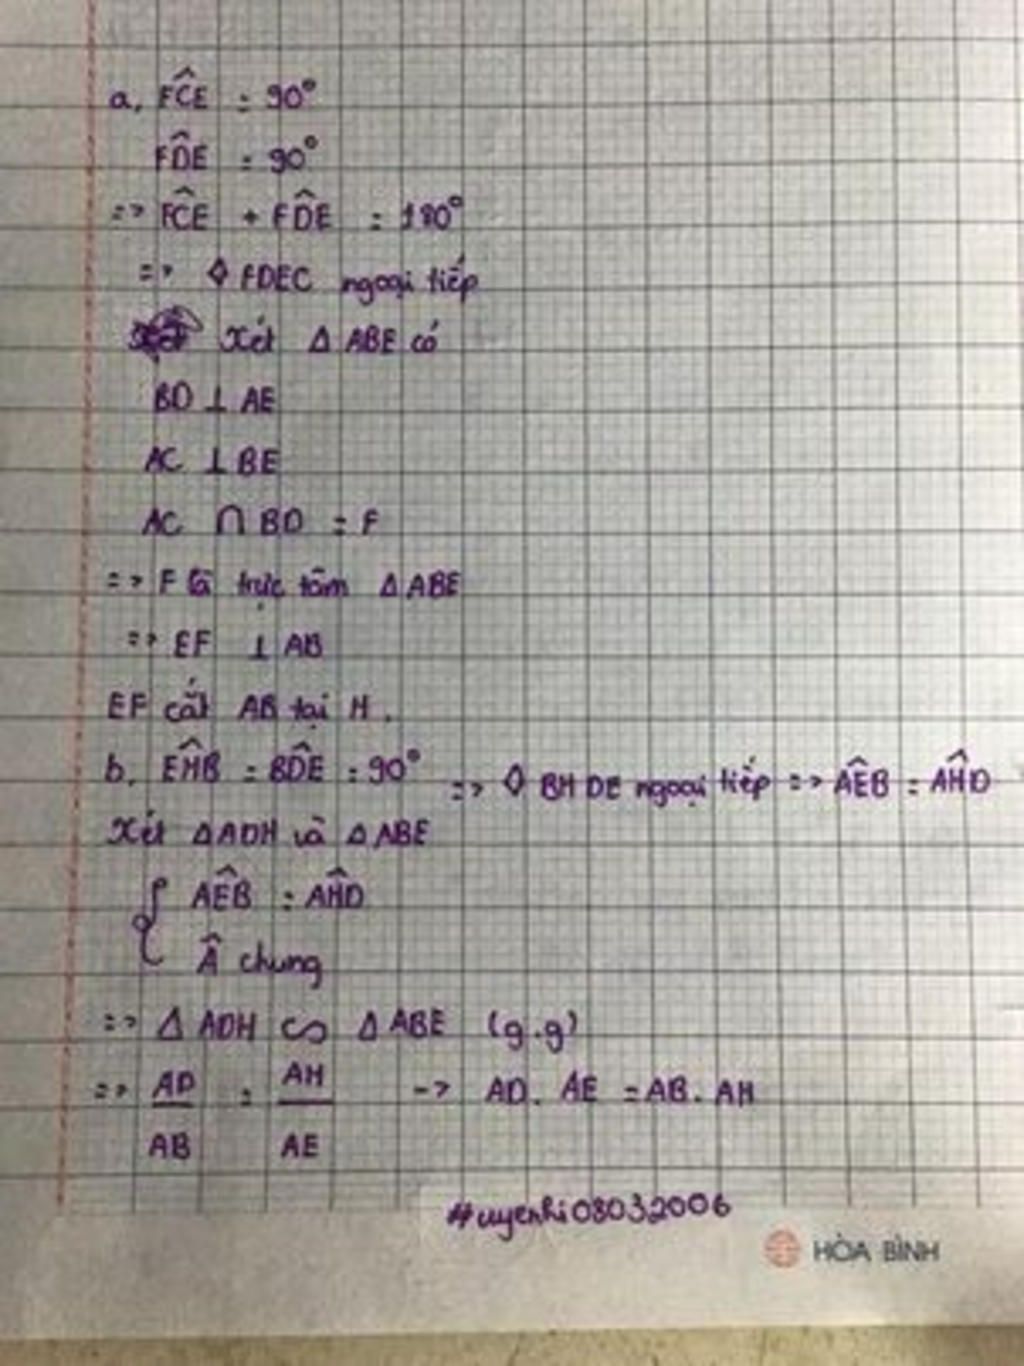 a, FĈE = 90°
FD̂E = 90°
=> FĈE + FD̂E = 180°
=> ◊ FDEC ngoại tiếp
Xét Δ ABE có
BD ⊥ AE
AC ⊥ BE
AC ∩ BD = F
=> F là trực tâm Δ ABE
=> EF ⊥ AB
EF cắt AB tại H.
b, EĤB = BD̂E = 90° => ◊ BHDE ngoại tiếp => AÊB = AĤD
Xét Δ ADH và Δ ABE
{ AÊB = AĤD
Â chung
=> Δ ADH ∽ Δ ABE (g.g)
=> AD/AB = AH/AE -> AD. AE = AB. AH
#uyenhi08032006
HÒA BÌNH